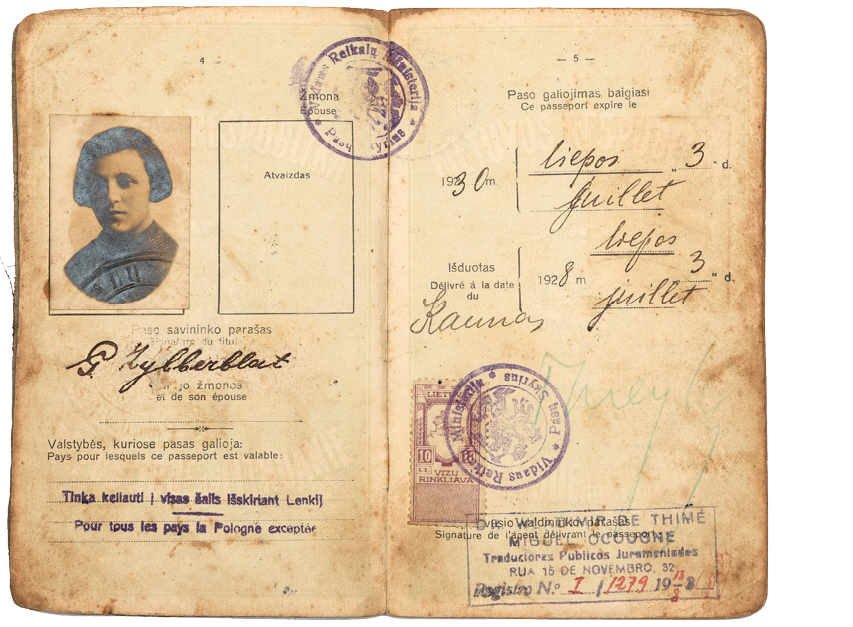 — 4 —
Žmona
Épouse
Vidaus Reikalų Ministerija
Pasų Skyrius
Atvaizdas
Paso savininko parašas
Signature du titul
G Zylberblat
jo žmonos
et de son épouse
Valstybės, kuriose pasas galioja:
Pays pour lesquels ce passeport est valable:
Tinka keliauti į visas šalis išskiriant Lenkiją
Pour tous les pays la Pologne exceptée
— 5 —
Paso galiojimas baigiasi
Ce passeport expire le
1930 m. liepos 3 d.
juillet
liepos
Išduotas
Délivré à la date du
1928 m 3 d.
juillet
Kaunas
Vidaus Reik Ministerija
Pasų Skyrius
LIETU
10
LT.
VIZU
RINKLIAVA
vusio valdininko parašas
Signature de l'agent délivrant le passeport
W DE THIMÉ
MIGUEL
Traductores Publicos Juramentados
RUA 15 DE NOVEMBRO, 32
Registro N.º I / 1279 19